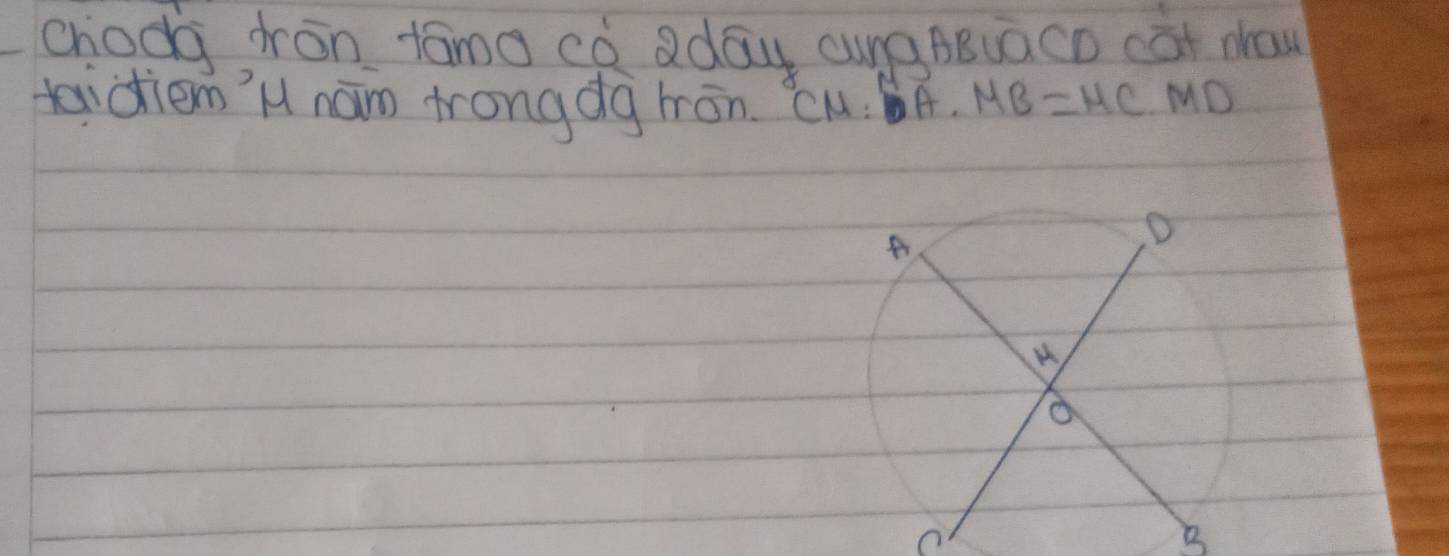 - Cho đg tròn tâm O có 2 dây cung AB và CD cắt nhau
tại điểm M nằm trong đg tròn. CM: MA. MB = MC. MD
A
D
M
O
C
B